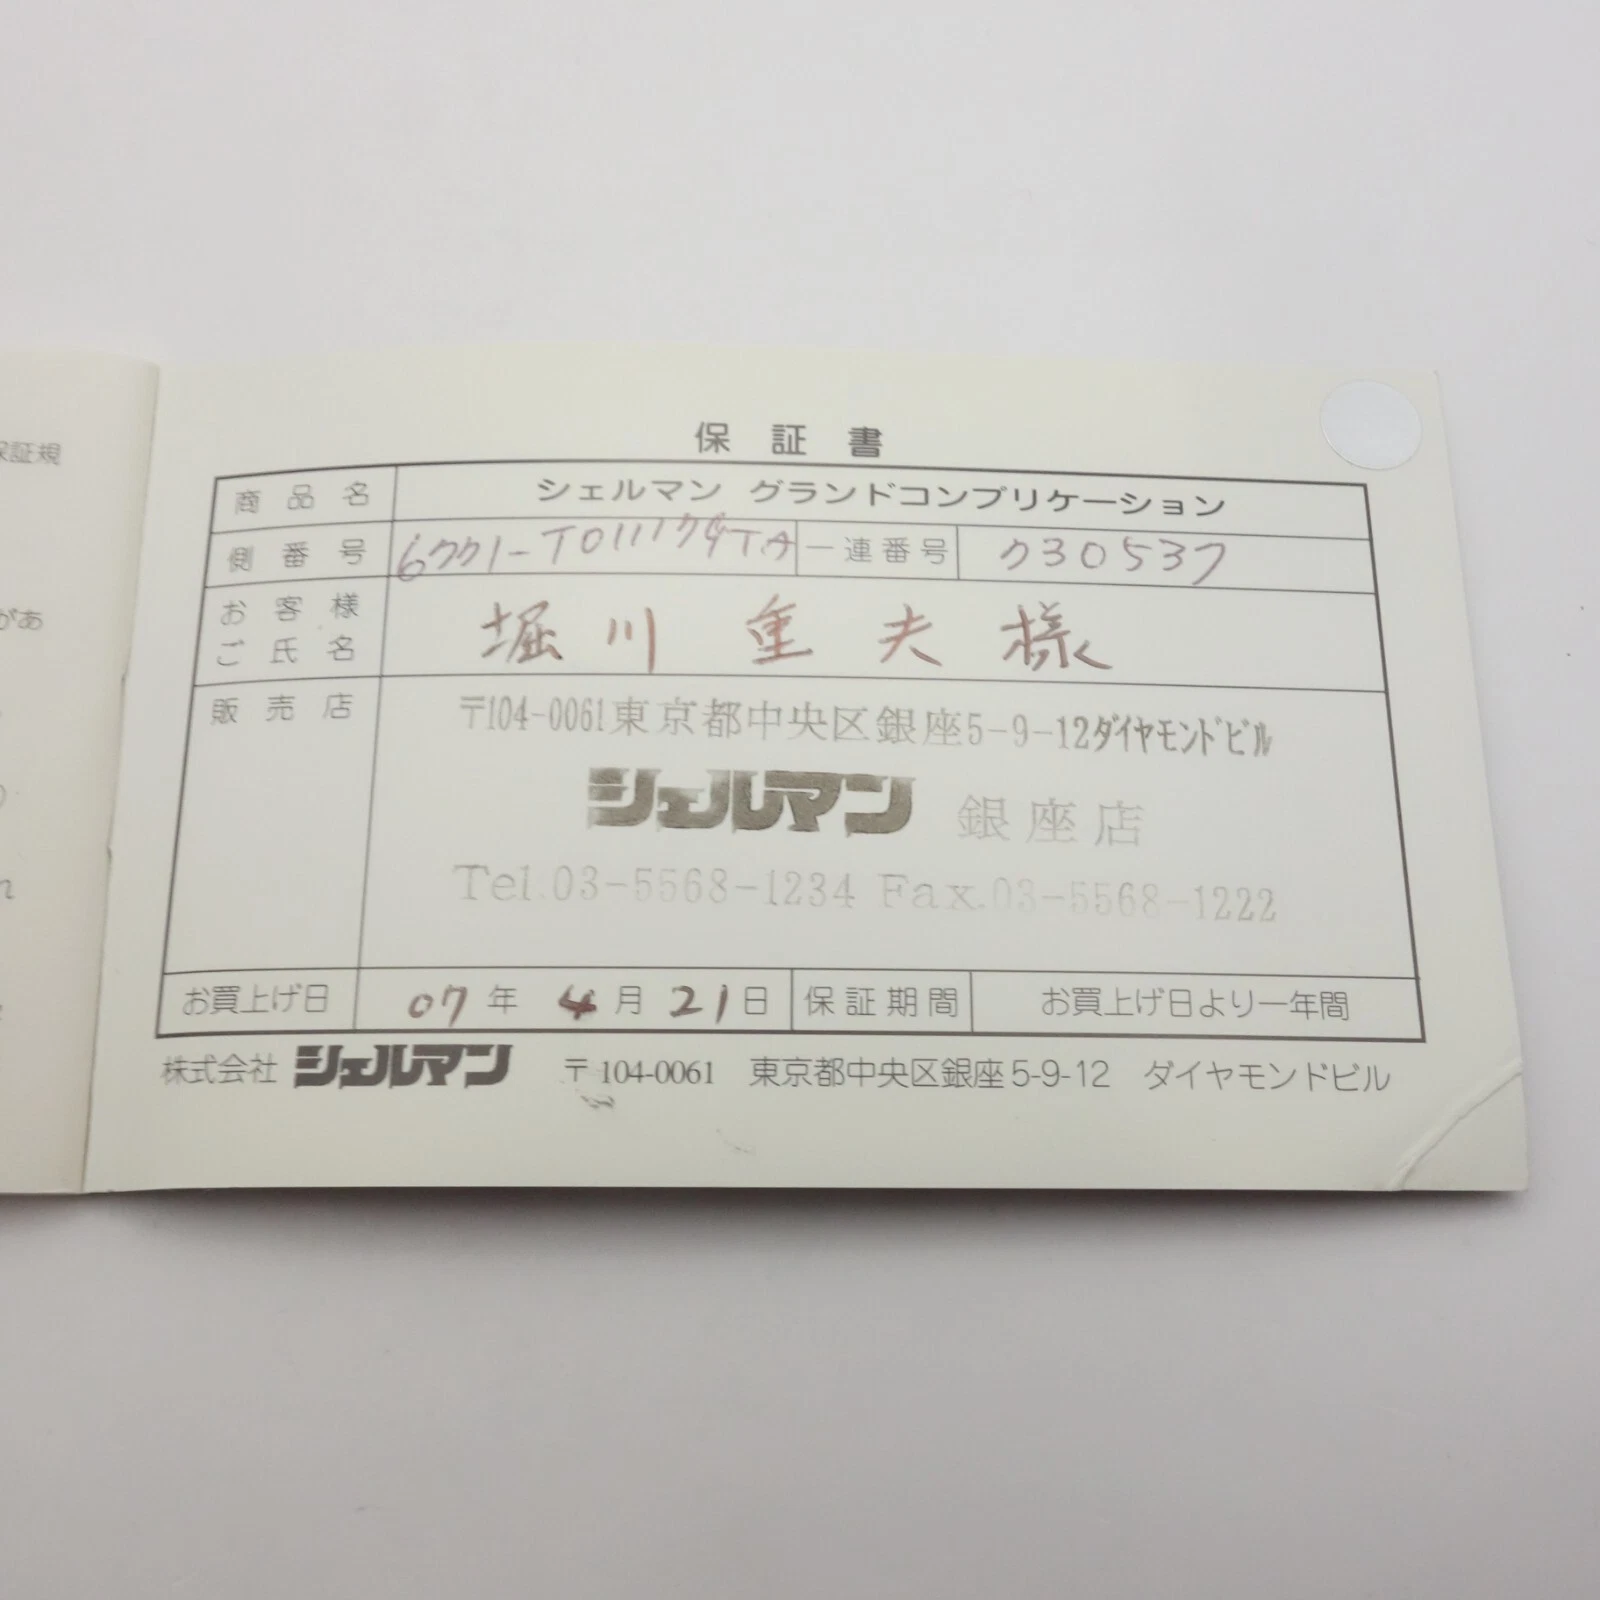 保証規
があ
れ
保証書
商品名 シェルマン グランドコンプリケーション
側番号 一連番号 730537
お客様
ご氏名 堀川 重夫様
販売店
〒104-0061東京都中央区銀座5-9-12ダイヤモンドビル
シェルマン 銀座店
Tel.03-5568-1234 Fax.03-5568-1222
お買上げ日 07年 4月 21日 保証期間 お買上げ日より一年間
株式会社 シェルマン 〒104-0061 東京都中央区銀座5-9-12 ダイヤモンドビル